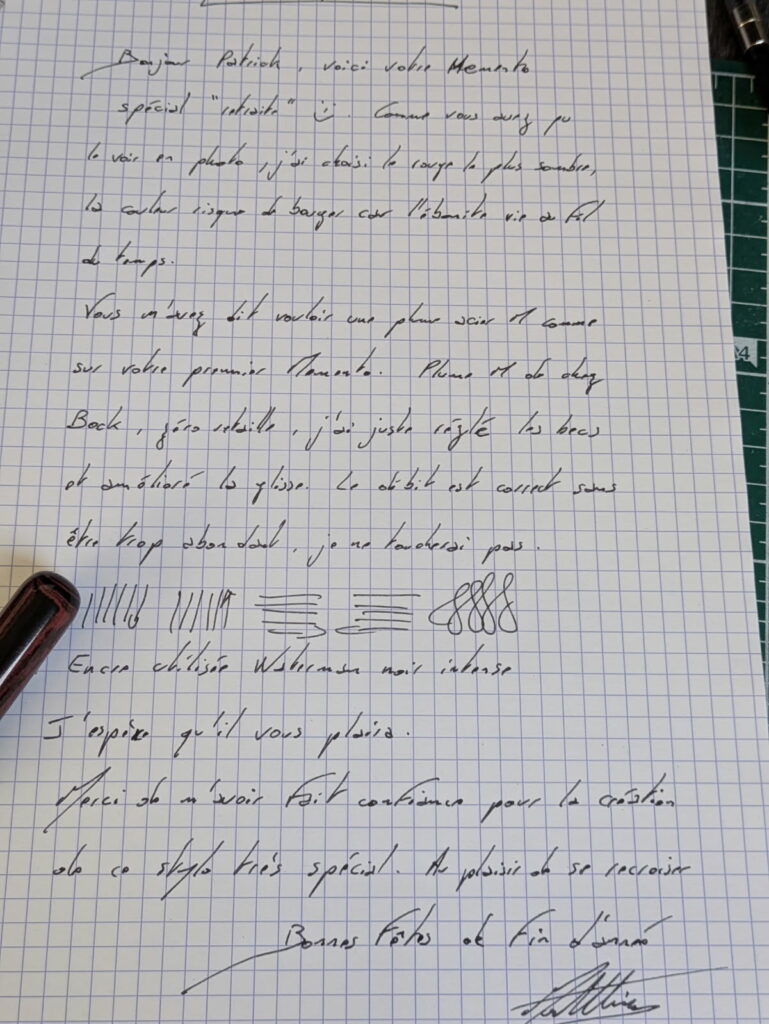 Bonjour Patrick, voici votre Memento
spécial "retraite" :). Comme vous avez pu
le voir en photo, j'ai choisi le rouge le plus sombre,
la couleur risque de bouger car l'ébonite vie au fil
du temps.
Vous m'avez dit vouloir une plume acier M comme
sur votre premier Memento. Plume M de chez
Bock, zéro retaille, j'ai juste réglé les becs
et amélioré la glisse. Le débit est correct sans
être trop abondant, je ne toucherai pas.
Encre utilisée Waterman noir intense
J'espère qu'il vous plaira.
Merci de m'avoir fait confiance pour la création
de ce stylo très spécial. Au plaisir de se recroiser
Bonnes Fêtes de Fin d'anné